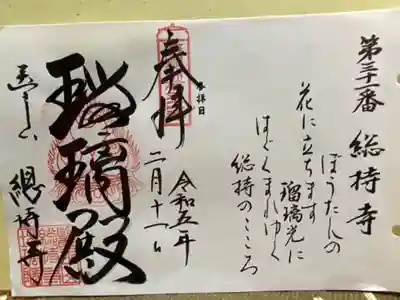 第三十一番 總持寺
ぼうたんの
花に立ちます
瑠璃光に
はぐくまれゆく
総持のこころ
奉拝
参拝日
令和五年
二月十一日
瑠璃殿
總持寺